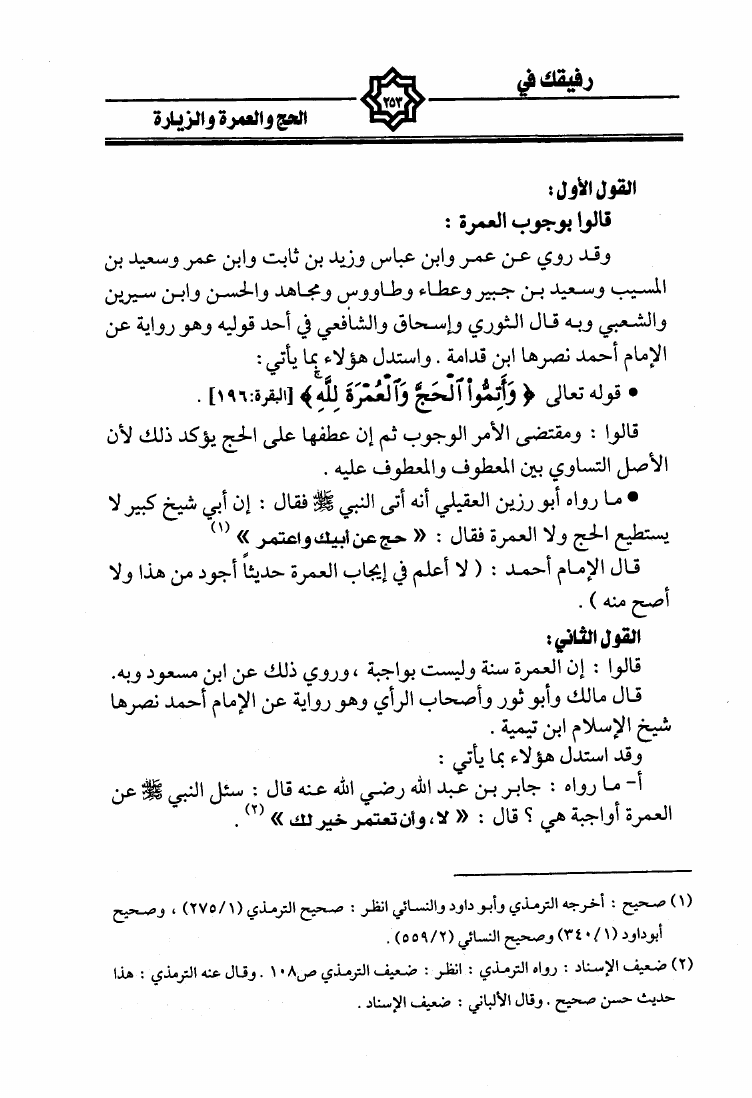 رفيقك في
٢٥٣
الحج والعمرة والزيارة
القول الأول:
قالوا بوجوب العمرة :
وقد روي عن عمر وابن عباس وزيد بن ثابت وابن عمر وسعيد بن
المسيب وسعيد بن جبير وعطاء وطاووس ومجاهد والحسن وابن سيرين
والشعبي وبه قال الثوري وإسحاق والشافعي في أحد قوليه وهو رواية عن
الإمام أحمد نصرها ابن قدامة . واستدل هؤلاء بما يأتي :
• قوله تعالى ﴿ وَأَتِمُّوا۟ ٱلْحَجَّ وَٱلْعُمْرَةَ لِلَّهِ ۚ﴾ [البقرة:١٩٦] .
قالوا : ومقتضى الأمر الوجوب ثم إن عطفها على الحج يؤكد ذلك لأن
الأصل التساوي بين المعطوف والمعطوف عليه .
• ما رواه أبو رزين العقيلي أنه أتى النبي ﷺ فقال : إن أبي شيخ كبير لا
يستطيع الحج ولا العمرة فقال : « حج عن أبيك واعتمر » (١)
قال الإمام أحمد : ( لا أعلم في إيجاب العمرة حديثاً أجود من هذا ولا
أصح منه ) .
القول الثاني:
قالوا : إن العمرة سنة وليست بواجبة ، وروي ذلك عن ابن مسعود وبه.
قال مالك وأبو ثور وأصحاب الرأي وهو رواية عن الإمام أحمد نصرها
شيخ الإسلام ابن تيمية .
وقد استدل هؤلاء بما يأتي :
أ- ما رواه : جابر بن عبد الله رضي الله عنه قال : سئل النبي ﷺ عن
العمرة أواجبة هي ؟ قال : « لا، وأن تعتمر خير لك » (٢) .
(١) صحيح : أخرجه الترمذي وأبو داود والنسائي انظر : صحيح الترمذي (٢٧٥/١) ، وصحيح
أبوداود (٣٤٠/١) وصحيح النسائي (٥٥٩/٢) .
(٢) ضعيف الإسناد : رواه الترمذي : انظر : ضعيف الترمذي ص١٠٨ . وقال عنه الترمذي : هذا
حديث حسن صحيح . وقال الألباني : ضعيف الإسناد .